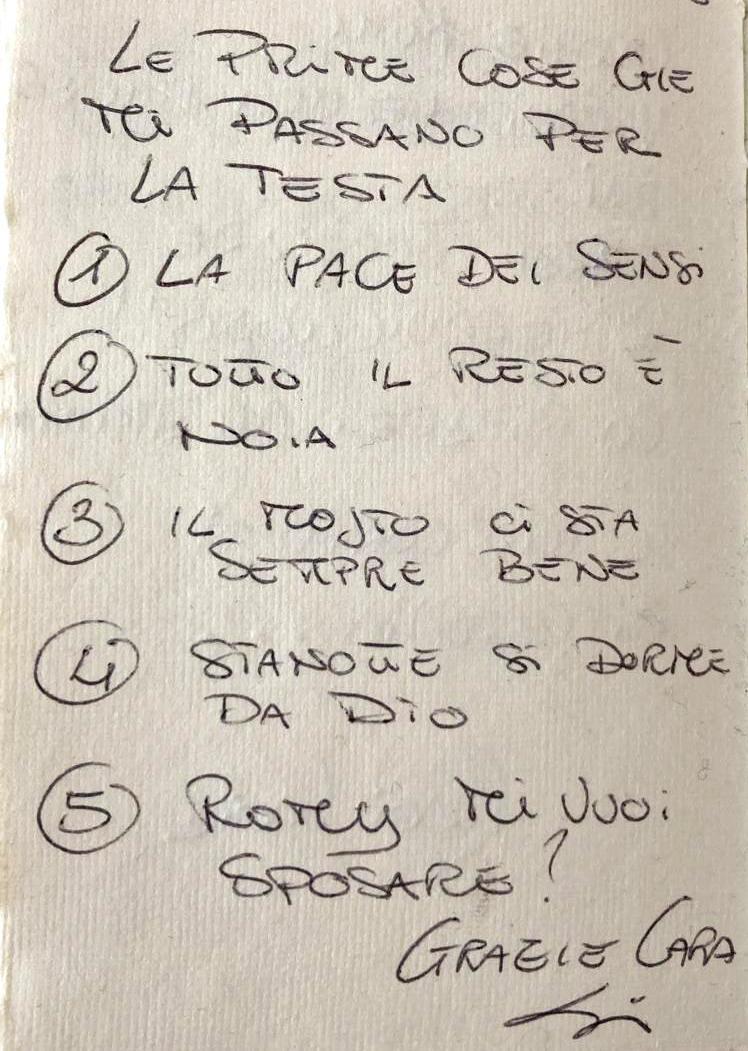 LE PRIME COSE CHE
Mi PASSANO PER
LA TESTA
1 LA PACE DEI SENSi
2 TUTTO IL RESTO È
NOIA
3 IL MOSTO Ci STA
SEMPRE BENE
4 STANOTTE Si DORME
DA DIO
5 ROMY Mi VUOi
SPOSARE?
GRAZIE CARA